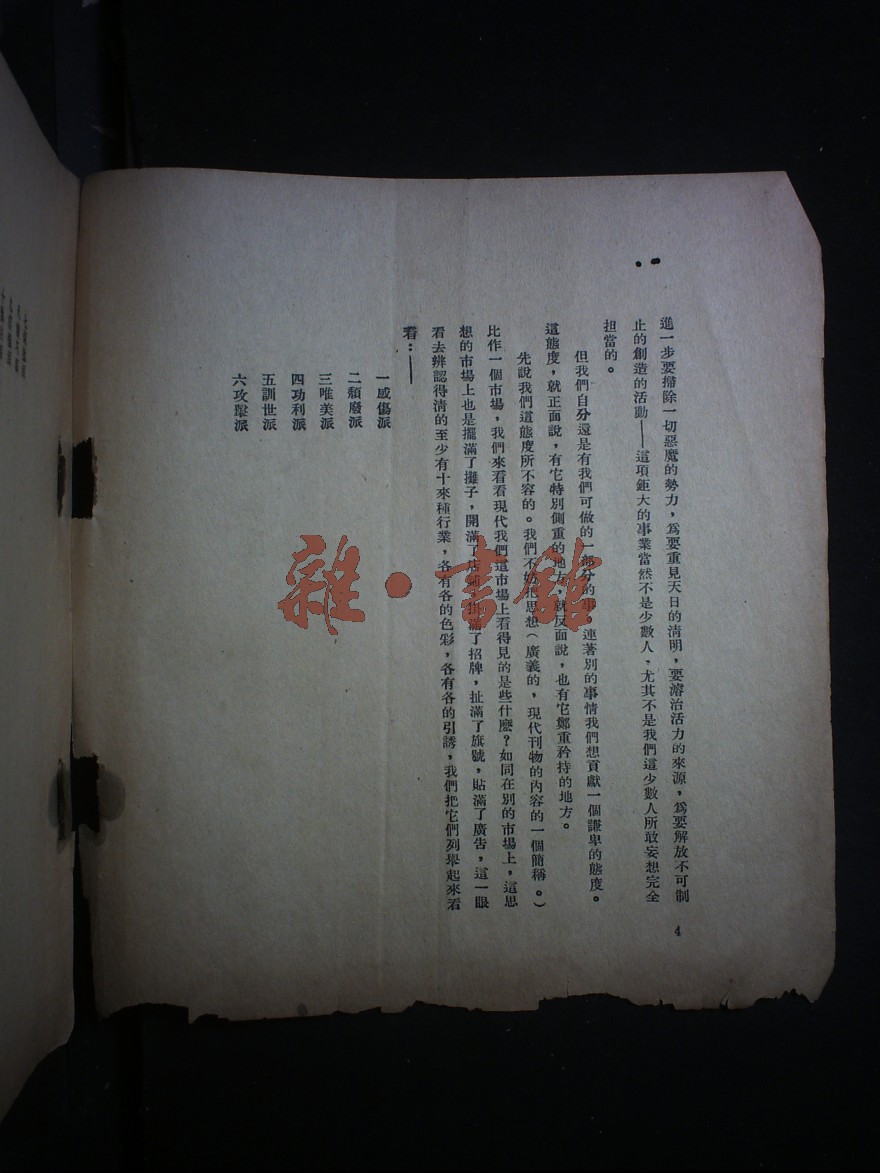 進一步要掃除一切惡魔的勢力，爲要重見天日的清明，要濬治活力的來源，爲要解放不可制
止的創造的活動——這項鉅大的事業當然不是少數人，尤其不是我們這少數人所敢妄想完全
担當的。
但我們自分還是有我們可做的一部分的事。連著別的事情我們想貢獻一個謙卑的態度。
這態度，就正面說，有它特別側重的地方，就反面說，也有它鄭重矜持的地方。
先說我們這態度所不容的。我們不妨把思想（廣義的，現代刊物的內容的一個簡稱。）
比作一個市場，我們來看看現代我們這市場上看得見的是些什麽？如同在別的市場上，這思
想的市場上也是擺滿了攤子，開滿了店鋪，掛滿了招牌，扯滿了旗號，貼滿了廣告，這一眼
看去辨認得清的至少有十來種行業，各有各的色彩，各有各的引誘，我們把它們列舉起來看
看：——
一感傷派
二頽廢派
三唯美派
四功利派
五訓世派
六攻擊派
4
雜·書館